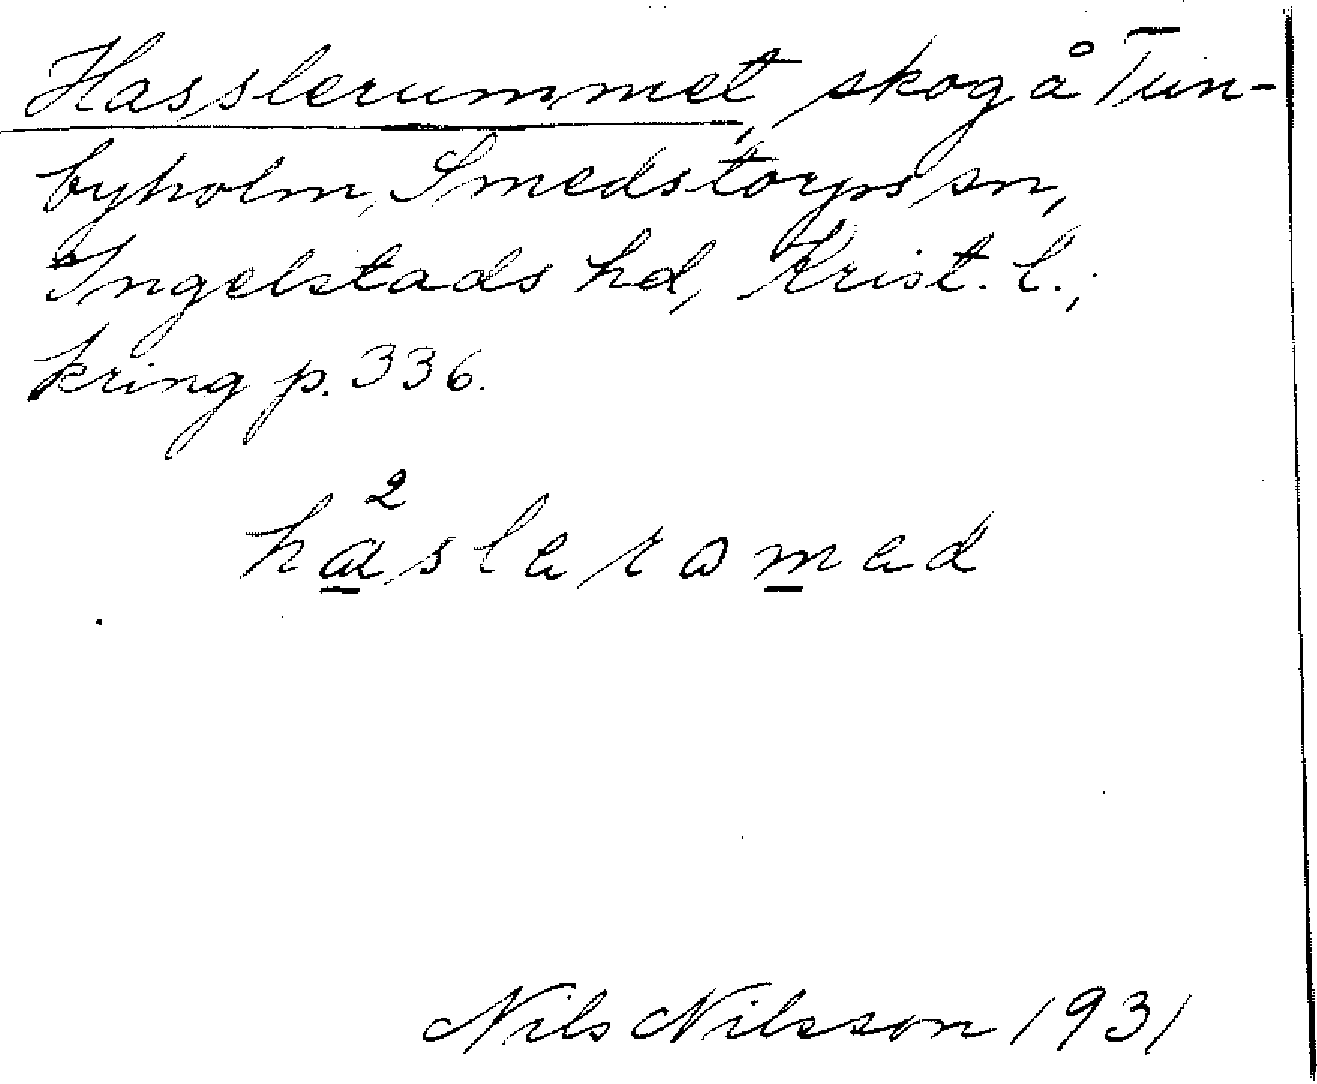 Hasslerummet, skog å Tun-
byholm, Smedstorps sn,
Ingelstads hd, Krist. l.;
kring p. 336.
2
haslaromad
Nils Nilsson 1931